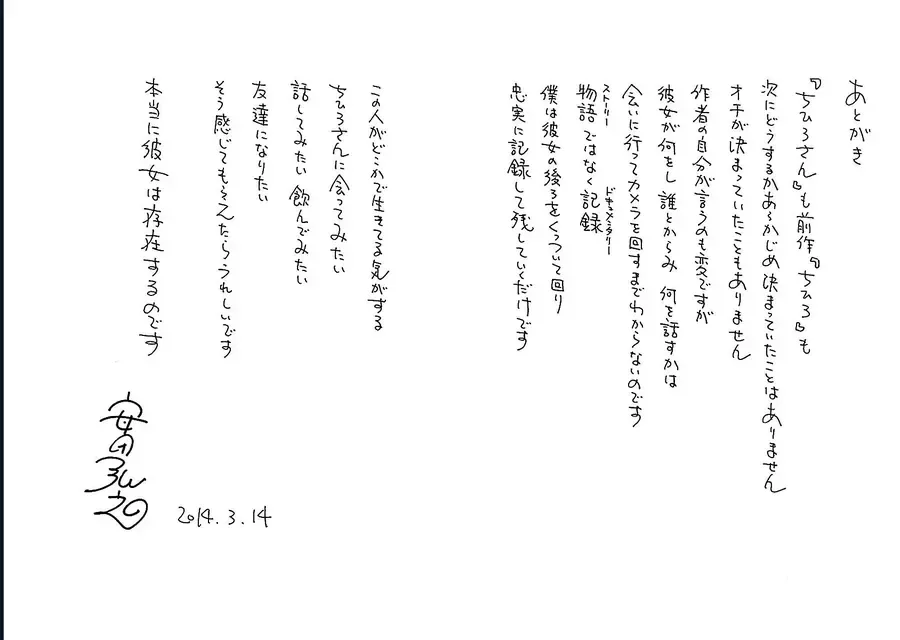 あとがき
『ちひろさん』も前作『ちひろ』も
次にどうするかあらかじめ決まっていたことはありません
オチが決まっていたこともありません
作者の自分が言うのも変ですが
彼女が何をし 誰とからみ 何を話すかは
会いに行ってカメラを回すまでわからないのです
ストーリー ドキュメンタリー
物語ではなく記録
僕は彼女の後ろをくっついて回り
忠実に記録して残していくだけです
この人がどこかで生きてる気がする
ちひろさんに会ってみたい
話してみたい 飲んでみたい
友達になりたい
そう感じてもらえたらうれしいです
本当に彼女は存在するのです
安田弘之
2014.3.14